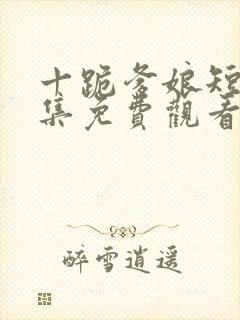 十跪爹娘短
集免費觀看
醉雪逍遥